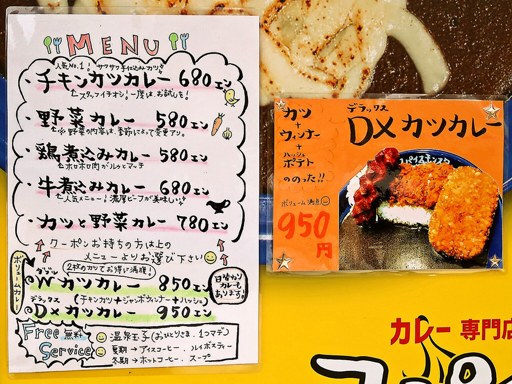 MENU
人気No.1! サクサク手仕込みカツ
・チキンカツカレー 680エン
スタッフイチオシ!一度は、お試しを!
・野菜カレー 580エン
野菜の内容は、季節によって変更アリ。
・鶏煮込みカレー 580エン
ホロホロ肉がルゥとマッチ
・牛煮込みカレー 680エン
人気メニュー!濃厚ビーフが美味しい
・カツと野菜カレー 780エン
クーポンお持ちの方は上の
メニューよりお選び下さい
ボリュームカレー
2枚のカツでお得に満腹!
ダブル
Wカツカレー 850エン
日替りカレーもあります!
デラックス (チキンカツ+ジャンボウィンナー+ハッシュ)
DXカレー 950エン
Free 無料 Service
温泉玉子(おひとりさま、1つマデ)
夏期→アイスコーヒー、ルイボスティー
冬期→ホットコーヒー、スープ
デラックス
DXカツカレー
カツ
+
ウィンナー
+
ハッシュ
ポテト
ののった!!
ボリューム満点
950円
スパイスモンスター
カレー専門店